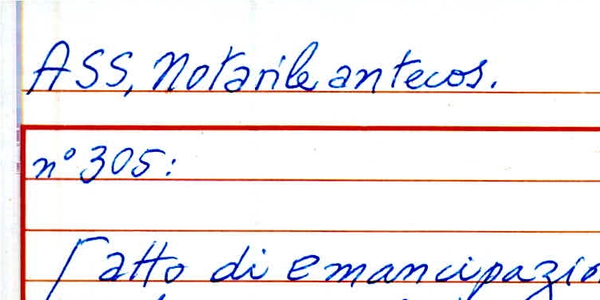 ASS, Notarile antecos.
n° 305:
[atto di emancipazio